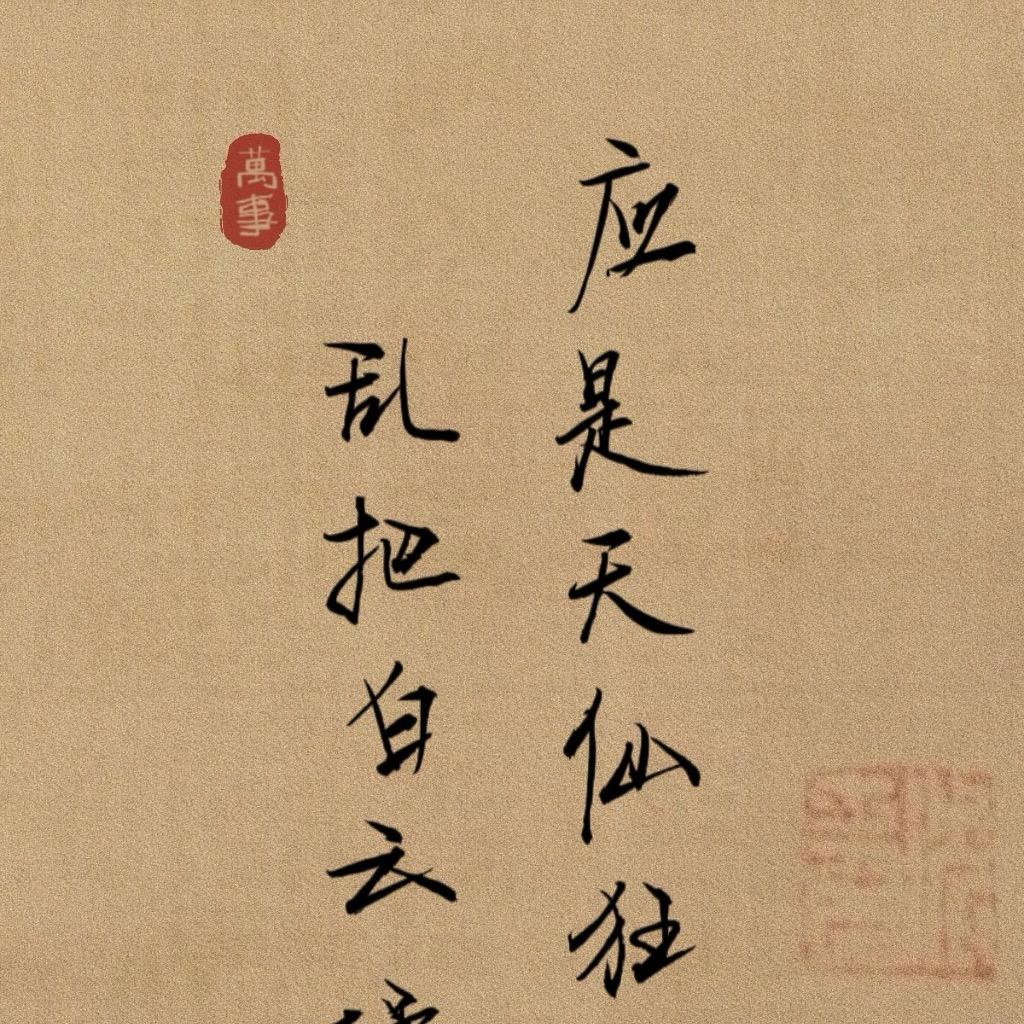 应是天仙狂
乱把白云
萬事